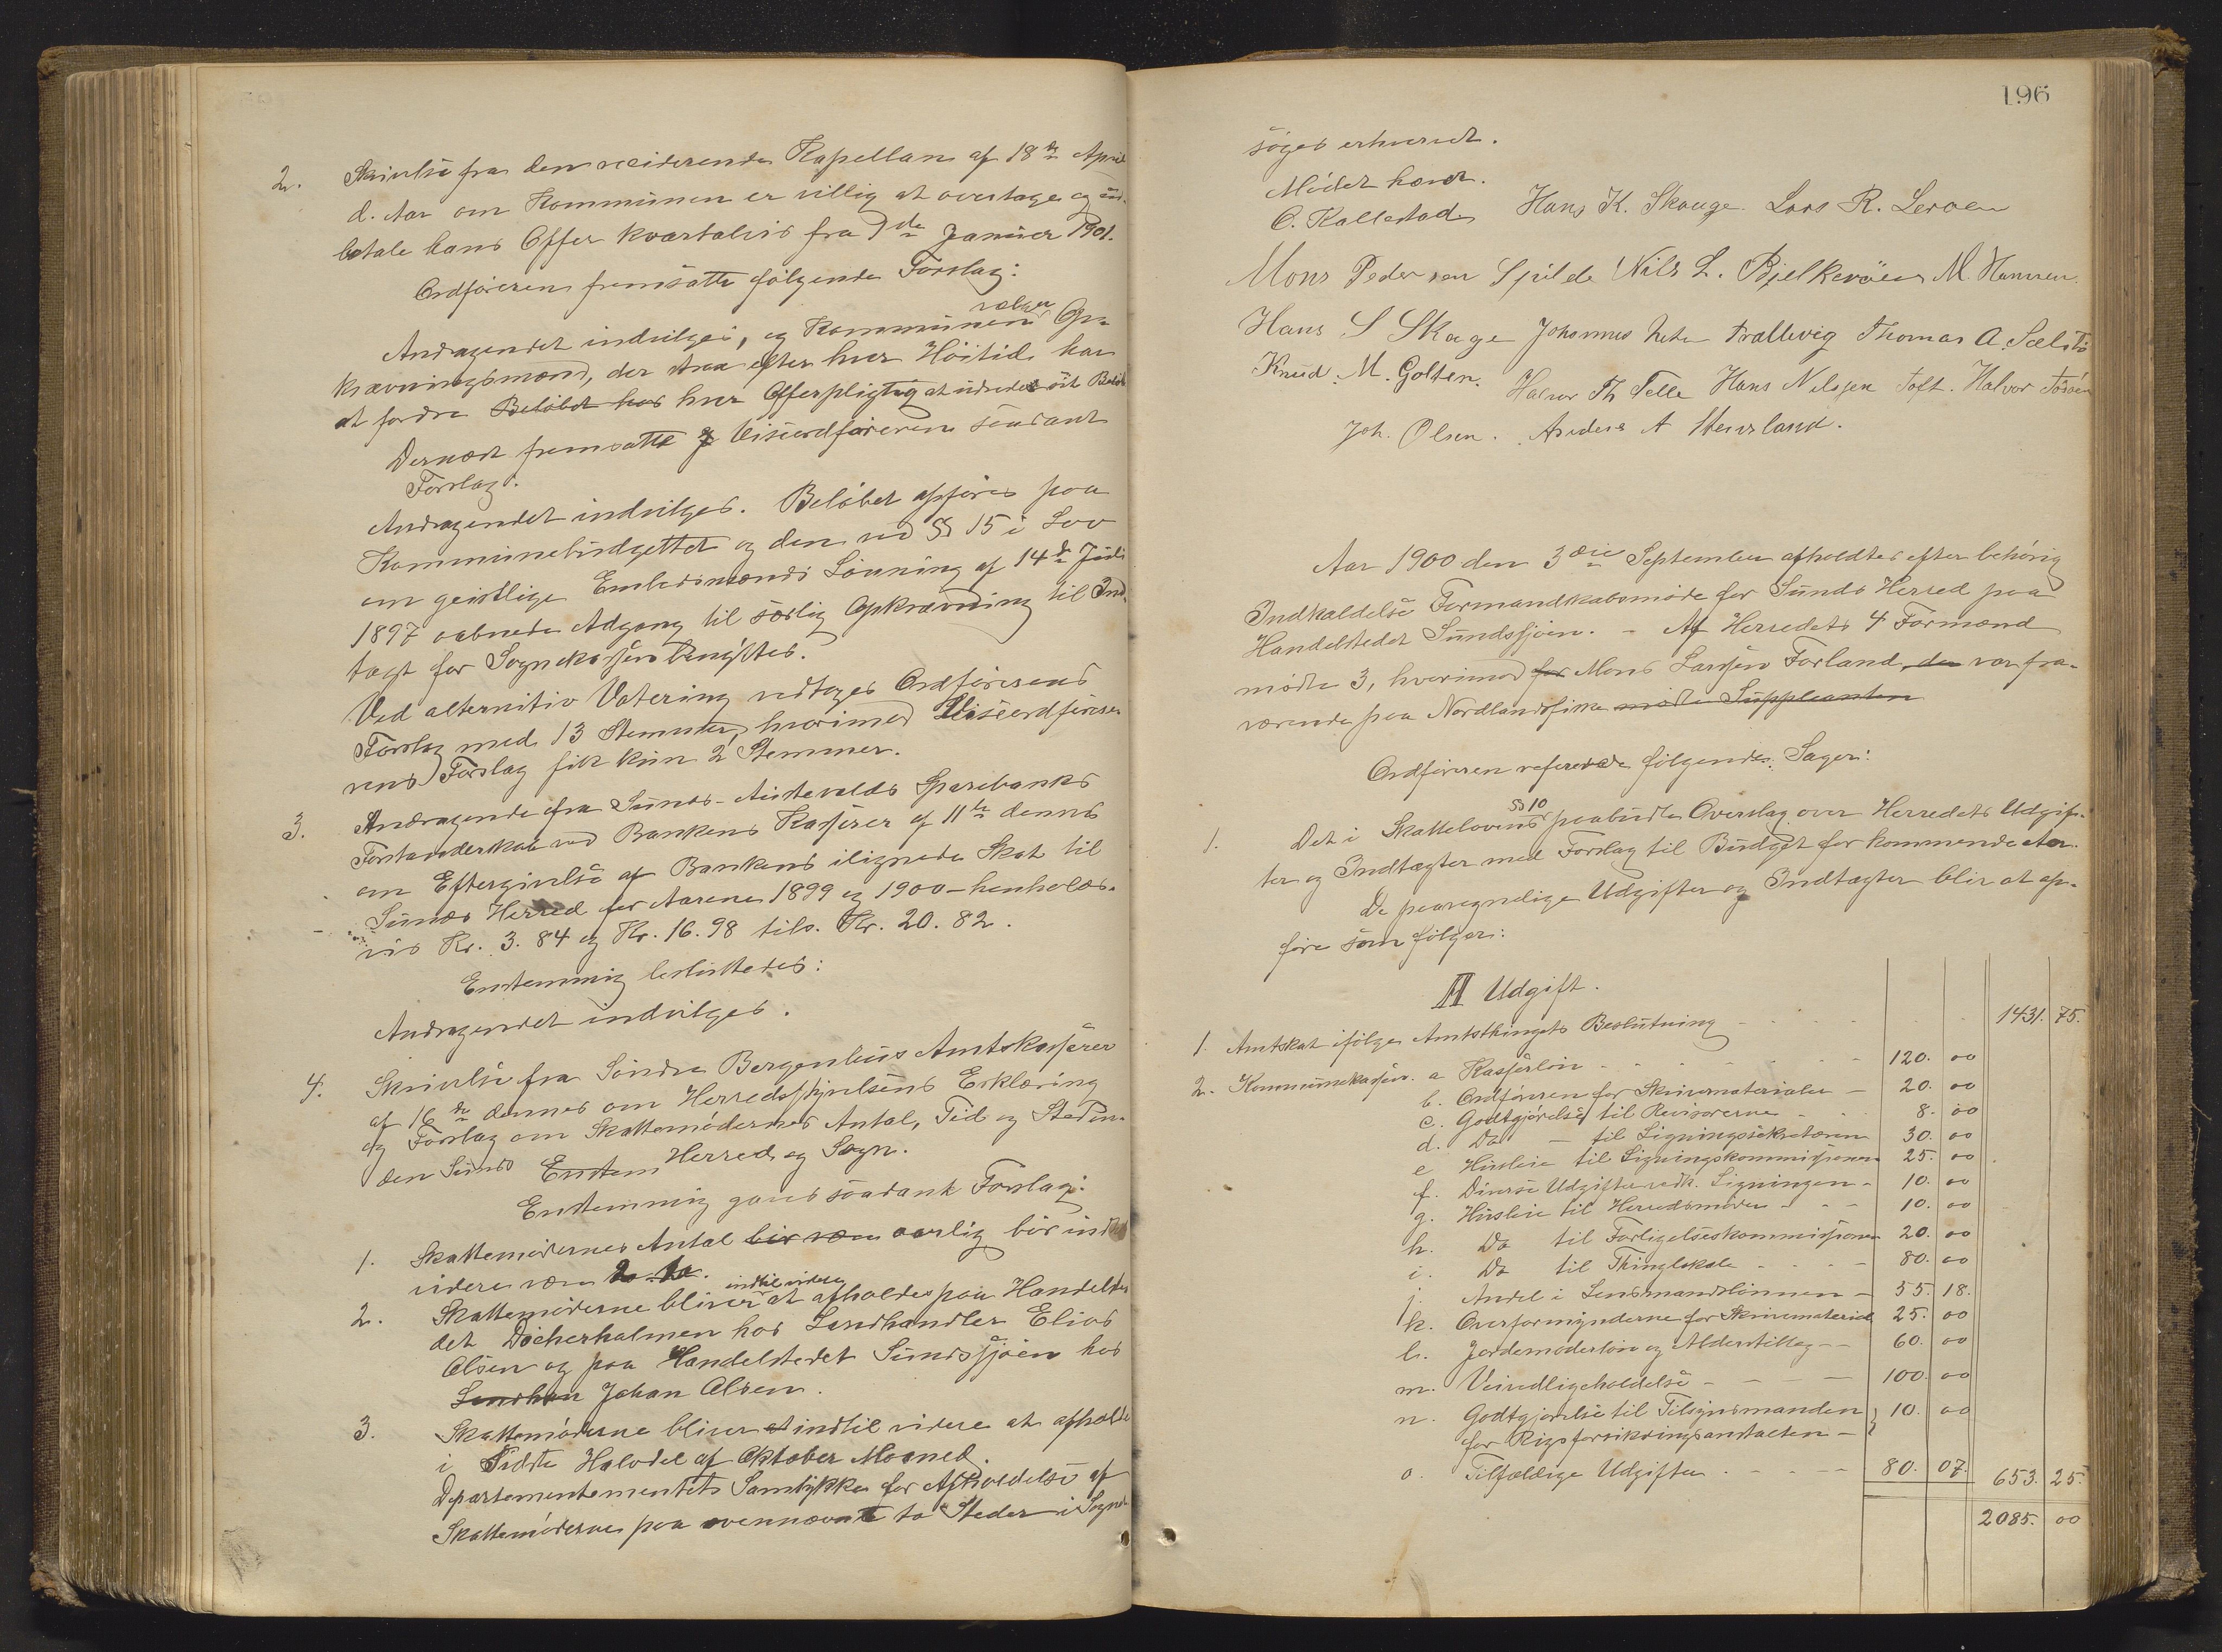 2. Skrivelse fra den residerende Kapellan af 18de April
d. Aar om Kommunen er villig at overtage og ud-
betale hans Offer kvartalvis fra 1ste Januar 1901.
Ordføreren fremsatte følgende Forslag:
Andragendet indvilges, og Kommunen vælger Op-
krævningsmænd, der straa efter hver Høitid har
at fordre Beløbet hos hver Offerpligtig at udrede sit Beløb
Dernæst fremsatte Viseordføreren saadant
Forslag:
Andragendet indvilges. Beløbet opføres paa
Kommunebudgettet og den ved §§ 15 i Lov
om geistlige Embedsmænds Lønning af 14de Juli
1897 aabnede Adgang til særlig Opkrævning til Ind-
tægt for Sognekassen benyttes.
Ved alternitiv Votering vedtoges Ordførerens
Forslag med 13 Stemmer, hvorimod Viseordføre-
rens Forslag fik kun 2 Stemmer.
3. Andragende fra Sunds-Austevolds Sparebanks
Forstanderskab ved Bankens Kasserer af 11te dennes
om Eftergivelse af Bankens ilignede Skat til
Sunds Herred for Aarene 1899 og 1900 - henholds-
vis Kr. 3.84 og Kr. 16.98 tils. Kr. 20.82.
Enstemmig besluttedes:
Andragendet indvilges.
4. Skrivelse fra Søndre Bergenhus Amtskasserer
af 16de dennes om Herredsstyrelsens Erklæring
og Forslag om Skattemødernes Antal, Tid og Sted in-
den Sunds Enstem Herred og Sogn.
Enstemmig gaves saadant Forslag:
1. Skattemødernes Antal bør være aarlig bør indtil
videre være to.
2. Skattemøderne bliver indtil videre at afholdes paa Handelste-
det Døcherholmen hos Landhandler Elias
Olsen og paa Handelstedet Sundssjøen hos
Landhan Johan Olsen.
3. Skattemøderne bliver at indtil videre at afholde
i Sidste Halvdel af Oktober Maaned.
Departementementets Samtykke for Afholdelse af
Skattemøderne paa ovennævnte to Steder i Sogne
196
søges erhvervet.
Mødet hævet.
O. Kallestad Hans K. Skauge Lars R. Lerøen
Mons Pedersen Spilde Nils L. Bjelkerøen M. Hansen
Hans S Skage Johannes Trællevig Thomas A. Sælstø
Knud M. Golten. Halvor Th Telle Hans Nilssen Toft. Halvor Tøssøen
Joh. Olsen. Anders A Steinsland.
Aar 1900 den 3die September afholdtes efter behørig
Indkaldelse Formandskabsmøde for Sunds Herred paa
Handelstedet Sundssjøen. - Af Herredets 4 Formænd
mødte 3, hvorimod for Mons Larssen Forland, der var fra-
værende paa Nordlandsfiske mødte Suppleanten
Ordføreren refererede følgende Sager:
1. Det i Skattelovens §§ 10 paabudte Overslag over Herredets Udgif-
ter og Indtægter med Forslag til Budget for kommende Aar.
De paaregnelige Udgifter og Indtægter blir at op-
føre som følger:
A Udgift.
1. Amtskat ifølge Amtsthingets Beslutning - - - 1431. 75.
2. Kommunekassen. a Kasserløn - - - 120. 00
b. Ordføreren for Skrivematerialer - 20. 00
c. Godtgjørelse til Revisorerne - - 8. 00
d. Do - til Ligningssekretæren 30. 00
e Husleie til Ligningskommissionen 25. 00
f. Diverse Udgifter vedk. Ligningen - 10. 00
g. Husleie til Herredsmøder - - - 10. 00
h. Do til Forligelseskommissionen 20. 00
i. Do til Thinglokale - - - 80. 00
j. Andel i Lensmandslønnen - 55. 18.
k. Overformynderne for Skrivemateriel 25. 00
l. Jordemoderløn og Alderstillæg - - 60. 00
m. Veivedligeholdelse - - - 100. 00
n. Godtgjørelse til Tilsynsmanden 10. 00
for Rigsforsikringsanstalten -
o. Tilfældige Udgifter - - - 80. 07. 653. 25.
2085. 00